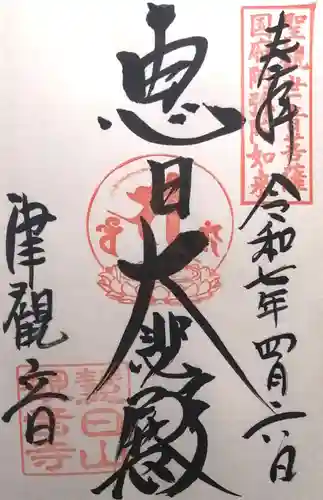 奉拝
令和七年四月二六日
聖観世音菩薩
国府阿弥陀如来
恵日大悲殿
津觀音
恵日山
観音寺